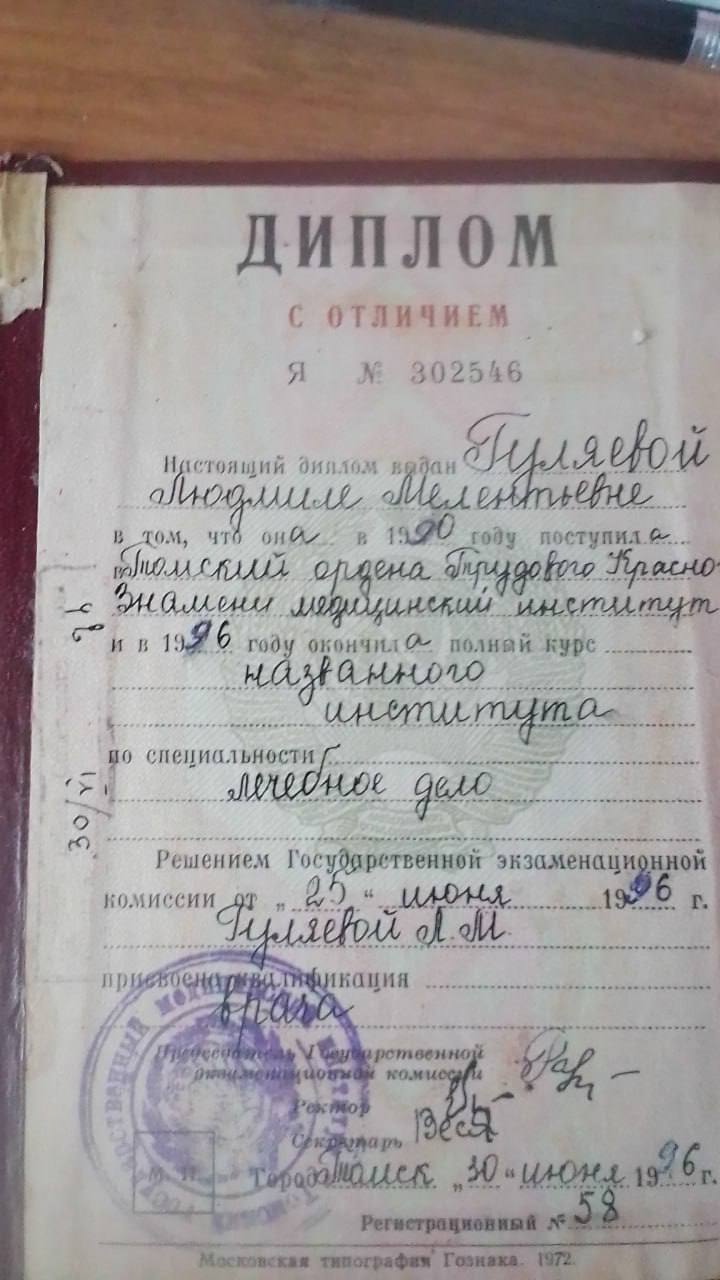 ДИПЛОМ
С ОТЛИЧИЕМ
Я № 302546
Настоящий диплом выдан Гуляевой
Людмиле Мелентьевне
в том, что она в 1990 году поступила
в Томский ордена Трудового Красно-
Знамени медицинский институт
и в 1996 году окончила полный курс
названного
института
по специальности
лечебное дело
Решением Государственной экзаменационной
комиссии от „25“ июня 1996 г.
Гуляевой Л.М.
присвоена квалификация
врача
Председатель Государственной
экзаменационной комиссии
Ректор
Секретарь
М. П.
Город Томск „30“ июня 1996 г.
Регистрационный № 58
Московская типография Гознака. 1972.
30/VI